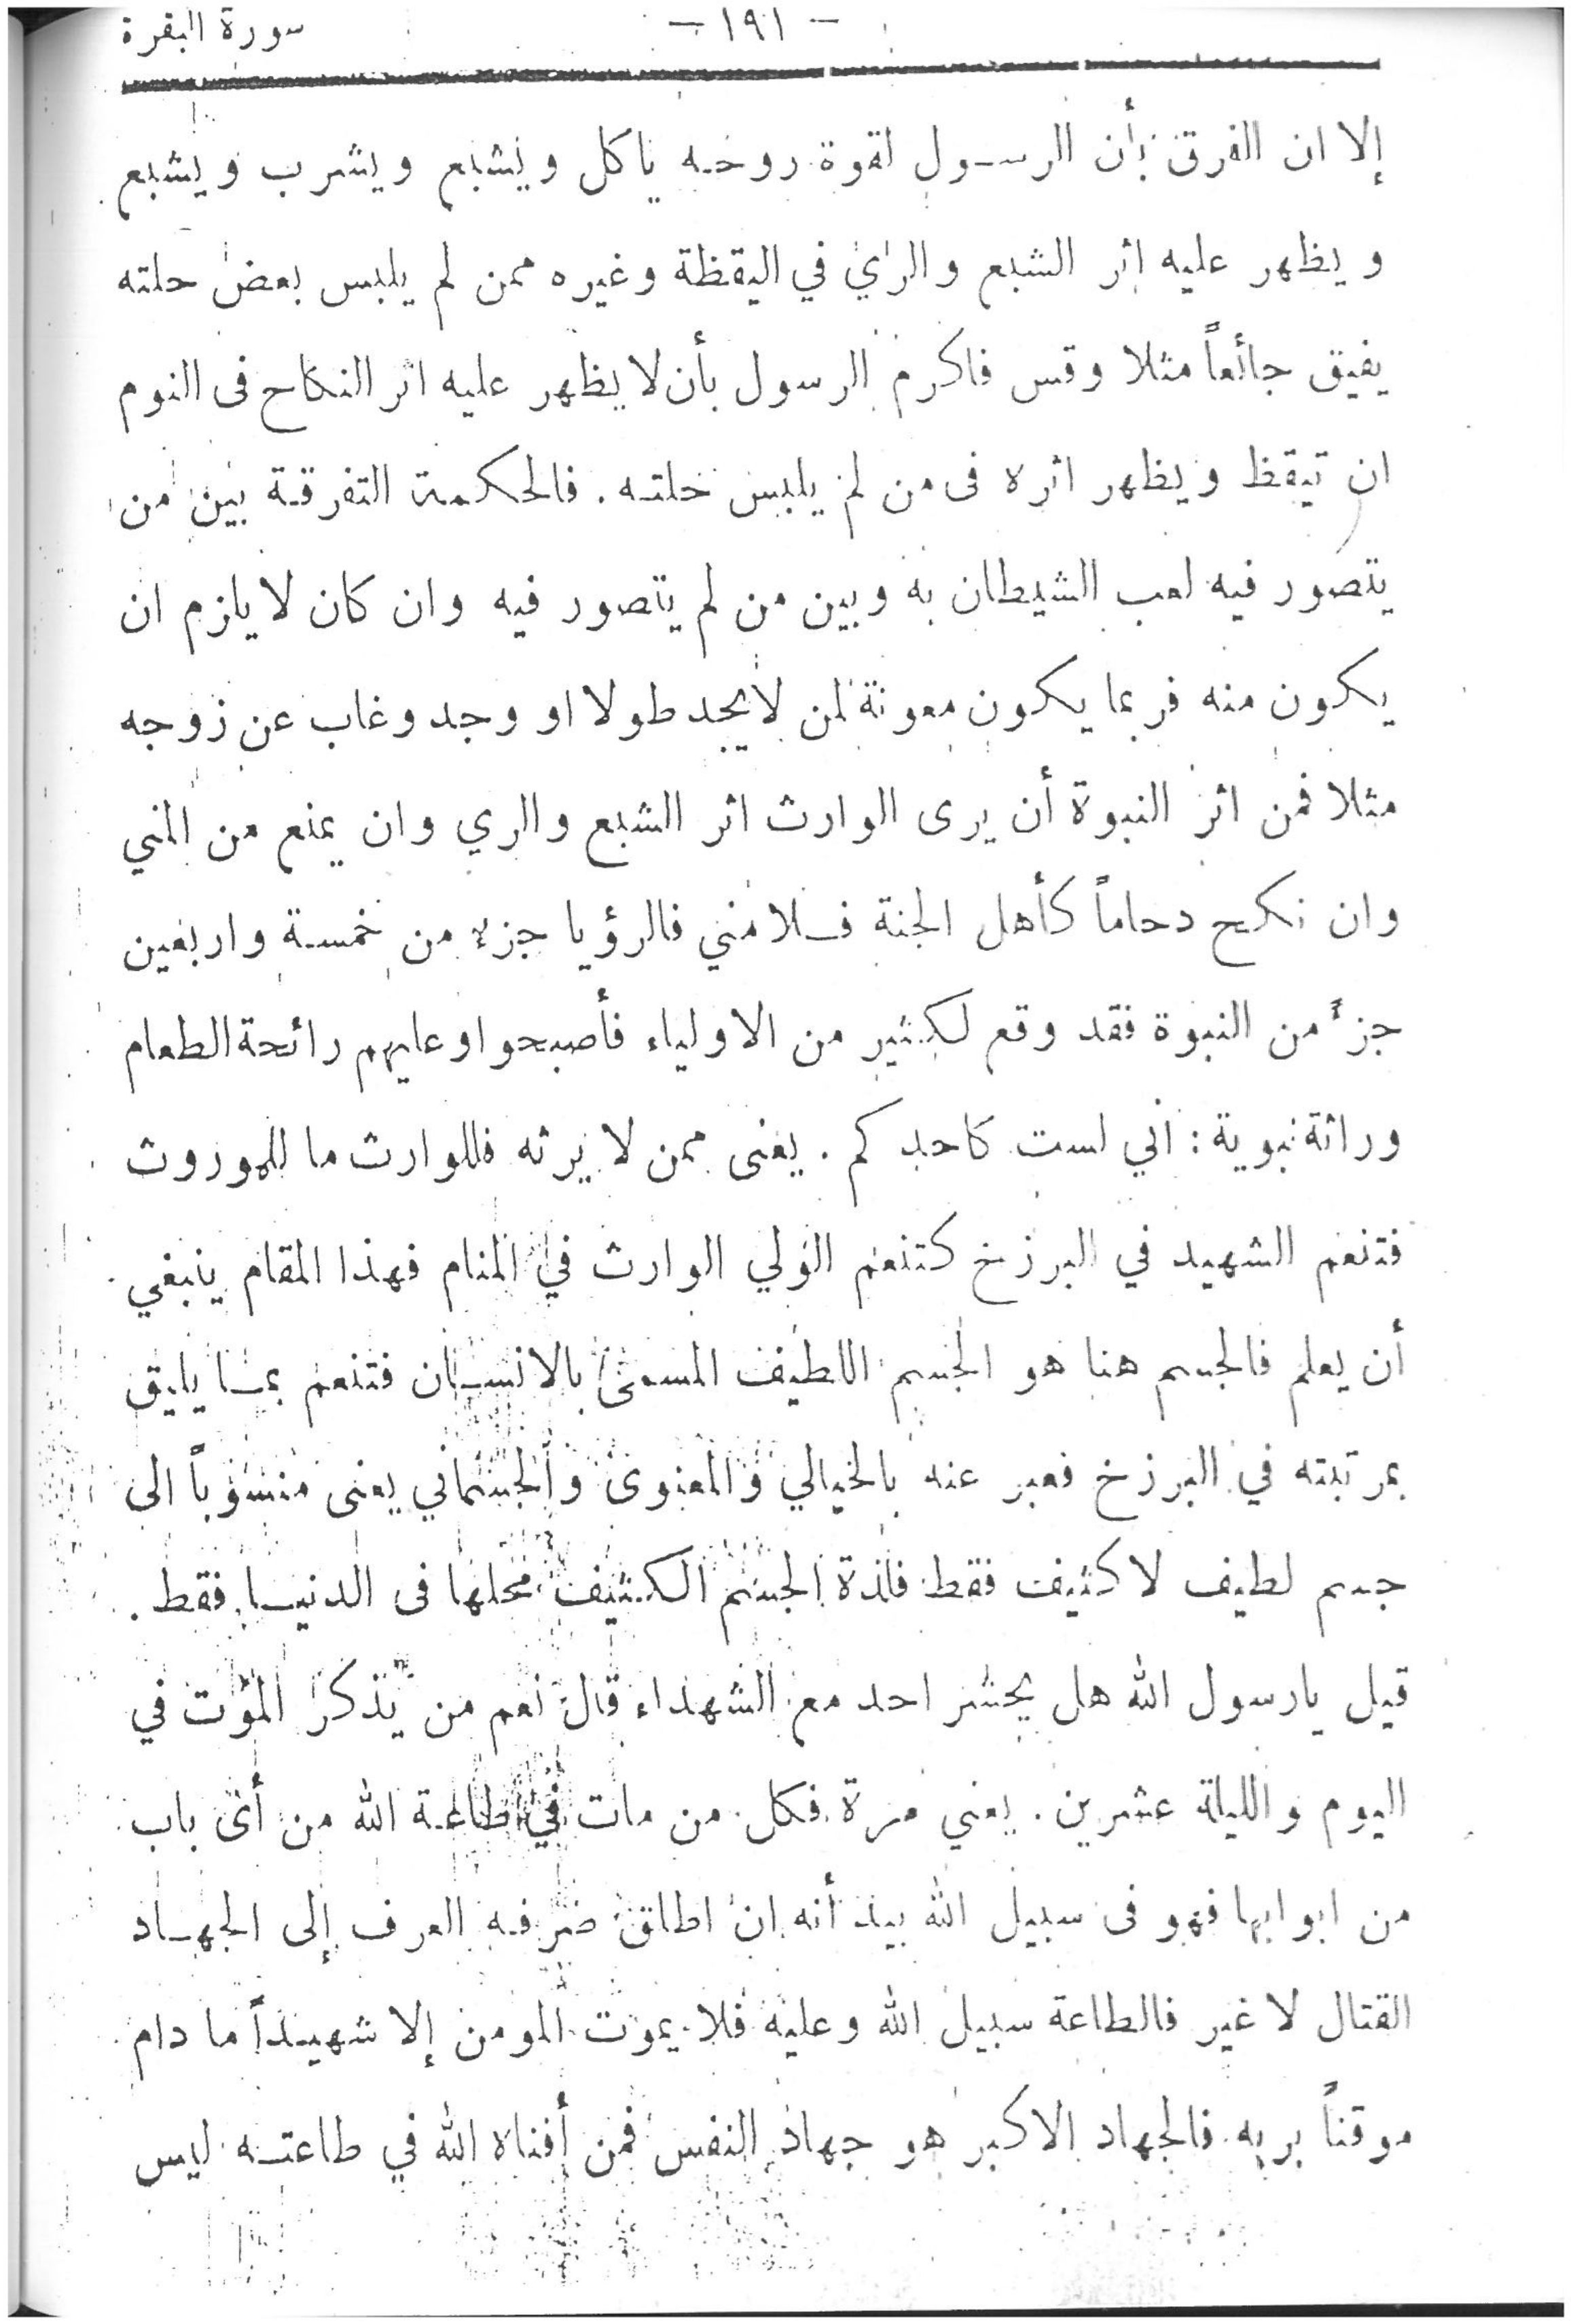 سورة البقرة
— ١٩١ —
إلا ان الفرق بأن الرسول لقوة روحه ياكل ويشبع ويشرب ويشبع
ويظهر عليه اثر الشبع والراي في اليقظة وغيره ممن لم يلبس بعض حلته
يفيق جائعاً مثلا وقس فاكرم الرسول بأن لا يظهر عليه اثر النكاح فى النوم
ان تيقظ ويظهر اثره فى من لم يلبس حلته . فالحكمة التفرقة بين من
يتصور فيه لعب الشيطان به وبين من لم يتصور فيه وان كان لا يلزم ان
يكون منه فربما يكون معونة لمن لا يجد طولا او وجد وغاب عن زوجه
مثلا فمن اثر النبوة أن يرى الوارث اثر الشبع والري وان يمنع من المني
وان نكح دحاماً كأهل الجنة فلا مني فالرؤيا جزء من خمسة واربعين
جزءً من النبوة فقد وقع لكثير من الاولياء فأصبحوا وعليهم رائحة الطعام
وراثة نبوية : اني لست كاحدكم . يعنى ممن لا يرثه فللوارث ما للموروث
فتنعم الشهيد في البرزخ كتنعم الولي الوارث في المنام فهذا المقام ينبغي
أن يعلم فالجسم هنا هو الجسم اللطيف المسمى بالانسان فتنعم بما يليق
بمرتبته في البرزخ فعبر عنه بالخيالي والمعنوى والجسماني يعنى منسوباً الى
جسم لطيف لا كثيف فقط فلذة الجسم الكثيف محلها فى الدنيا فقط .
قيل يارسول الله هل يحشر احد مع الشهداء قال نعم من يذكر الموت في
اليوم والليلة عشرين . يعني مرة فكل من مات في طاعة الله من أى باب
من ابوابها فهو فى سبيل الله بيد أنه ان اطلق صرفه العرف إلى الجهاد
القتال لا غير فالطاعة سبيل الله وعليه فلا يموت المومن إلا شهيداً ما دام
موقناً بربه فالجهاد الاكبر هو جهاد النفس فمن أفناه الله في طاعته ليس